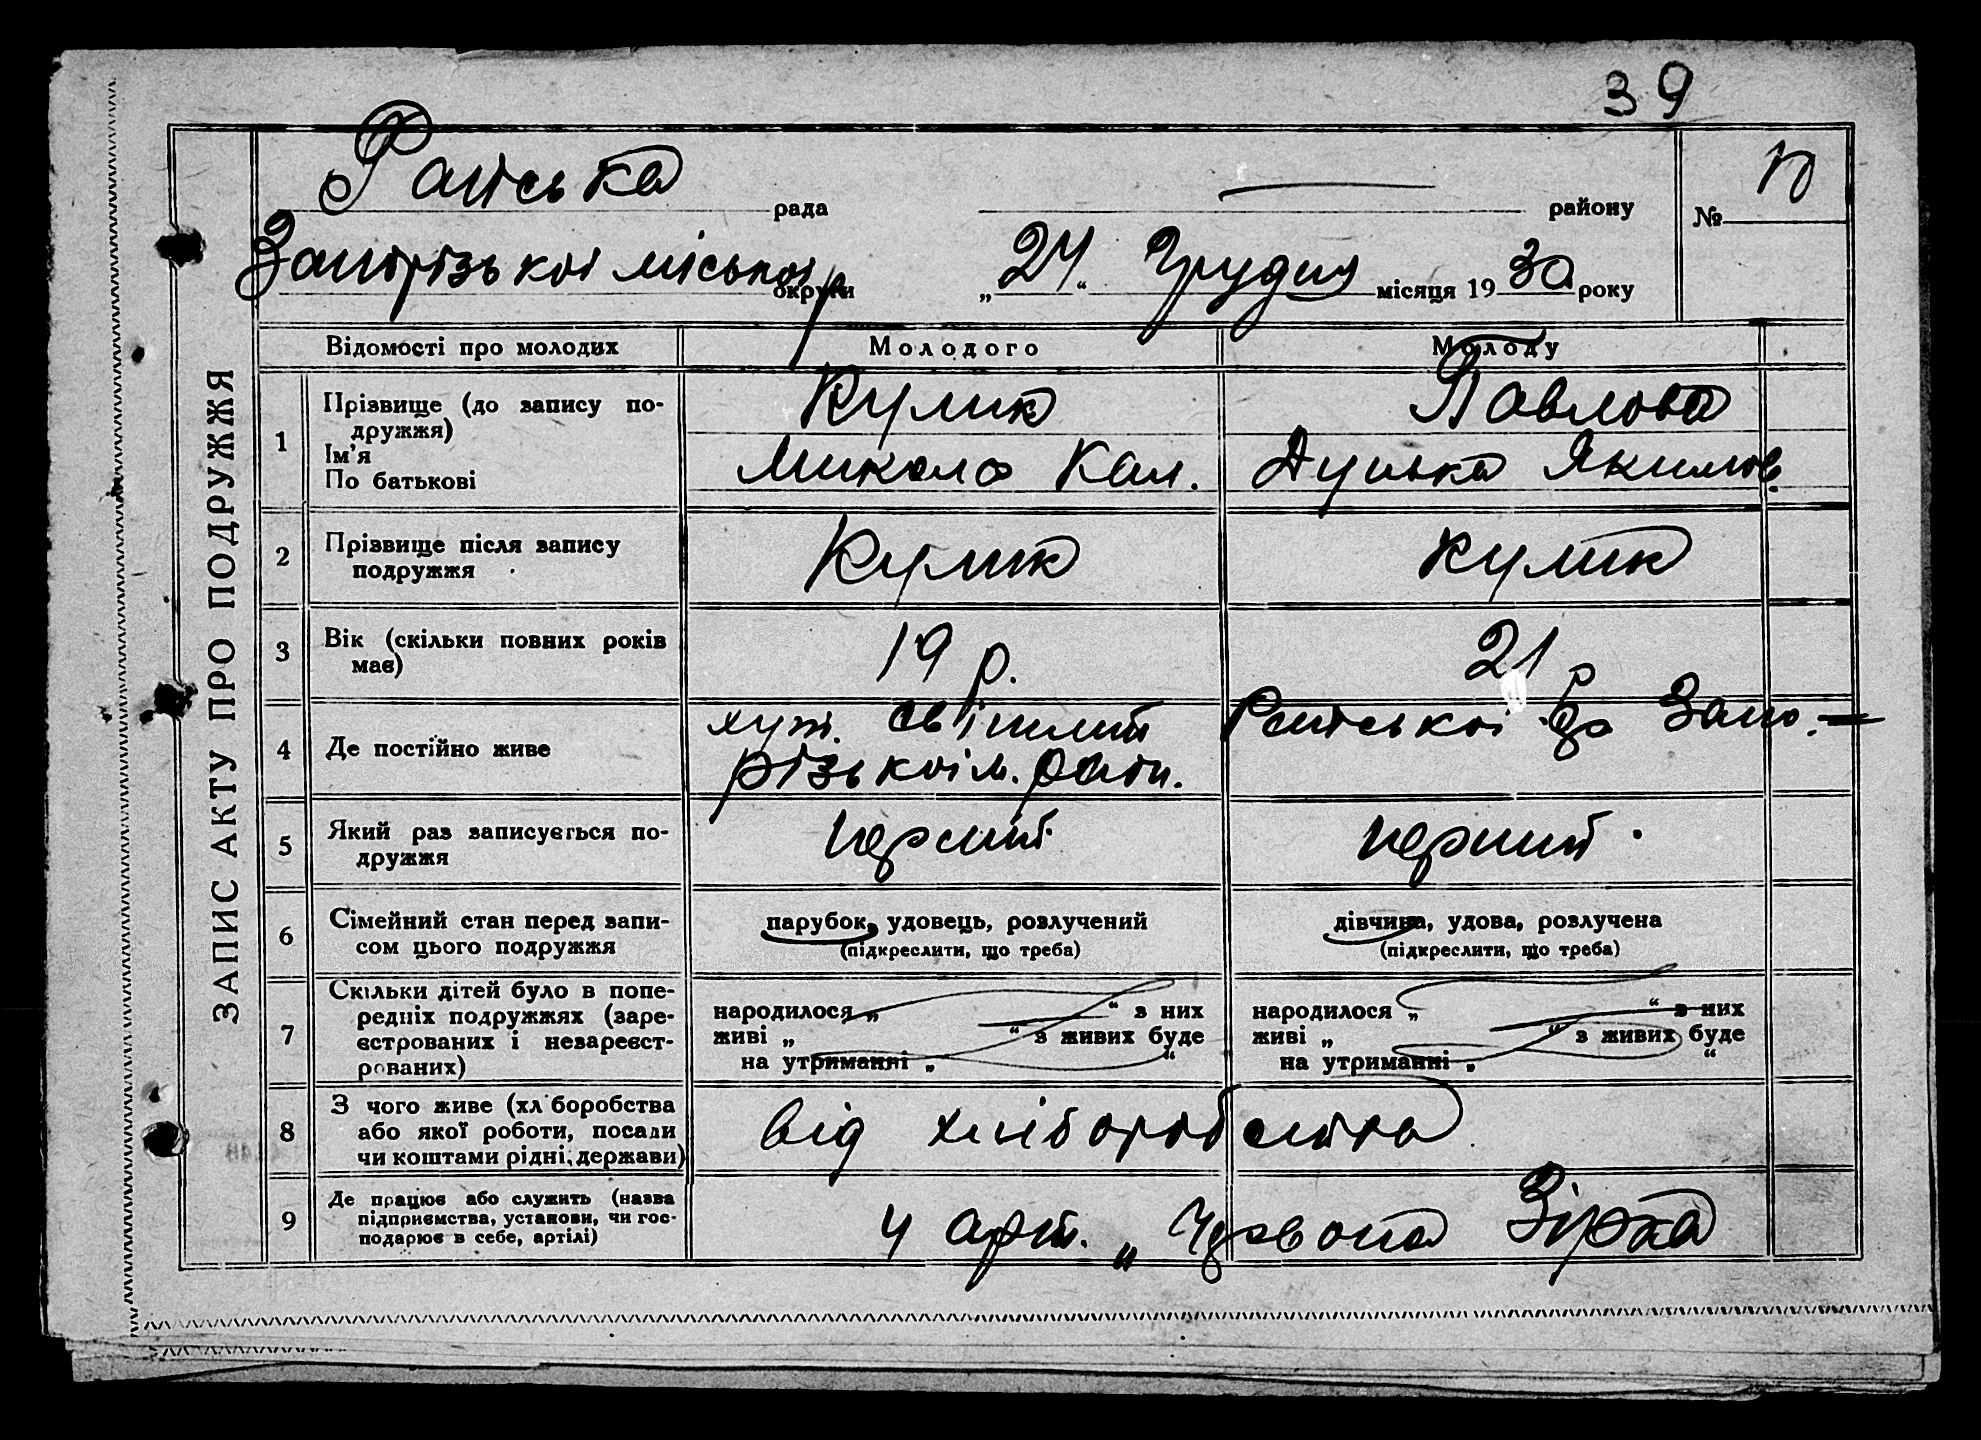 39
рада
району
№
Запорізької міської р
округи
„24“ Грудня місяця 1930 року
ЗАПИС АКТУ ПРО ПОДРУЖЖЯ
Відомості про молодих
Молодого
Молоду
1
Прізвище (до запису по-
дружжя)
Ім'я
По батькові
Кулик
Микола Кал.
Павлова
Дунька Якимов.
2
Прізвище після запису
подружжя
Кулик
Кулик
3
Вік (скільки повних років
має)
19 р.
21 р
4
Де постійно живе
хут. Світлий
Запо.-
різької м. ради.
5
Який раз записується по-
дружжя
перший
перший.
6
Сімейний стан перед запи-
сом цього подружжя
парубок, удовець, розлучений
(підкреслити, що треба)
дівчина, удова, розлучена
(підкреслити, що треба)
7
Скільки дітей було в попе-
редніх подружжях (заре-
єстрованих і незареєст-
рованих)
народилося „ “ з них
живі „ “ з живих буде
на утриманні „ “
народилося „ “ з них
живі „ “ з живих буде
на утриманні „ “
8
З чого живе (хліборобства
або якої роботи, посади
чи коштами рідні, держави)
від хліборобства
9
Де працює або служить (назва
підприємства, установи, чи гос-
подарює в себе, артілі)
у арт. „Червона Зірка